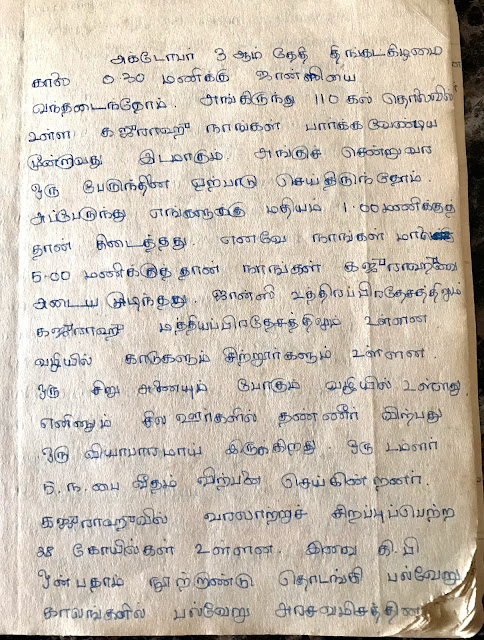 அக்டோபர் 3 ஆம் தேதி திங்கட்கிழமை
காலை 0.30 மணிக்கு ஜான்ஸியை
வந்தடைந்தோம். அங்கிருந்து 110 கல் தொலைவில்
உள்ள கஜுராஹு நாங்கள் பார்க்கவேண்டிய
மூன்றாவது இடமாகும். அங்குச் சென்றுவர
ஒரு பேருந்தினை ஏற்பாடு செய்திருந்தோம்.
அப்பேருந்து எங்களுக்கு மதியம் 1.00 மணிக்குத்
தான் கிடைத்தது. எனவே நாங்கள் மாலை
5.00 மணிக்குத்தான் நாங்கள் கஜுராஹுவை
அடைய முடிந்தது. ஜான்ஸி உத்திரப்பிரதேசத்திலும்
கஜுராஹு மத்தியப்பிரதேசத்திலும் உள்ளன
வழியில் காடுகளும் சிற்றூர்களும் உள்ளன.
ஒரு சிறு அணையும் போகும் வழியில் உள்ளது.
எனினும் சில ஊர்களில் தண்ணீர் விற்பது
ஒரு வியாபாரமாய் இருக்கிறது. ஒரு டம்ளர்
5.ந.பை வீதம் விற்பனை செய்கின்றனர்.
கஜுராஹுவில் வரலாற்றுச் சிறப்புப்பெற்ற
38 கோயில்கள் உள்ளன. இவை கி.பி
ஒன்பதாம் நூற்றாண்டு தொடங்கி பல்வேறு
காலங்களில் பல்வேறு அரசவம்சத்தின